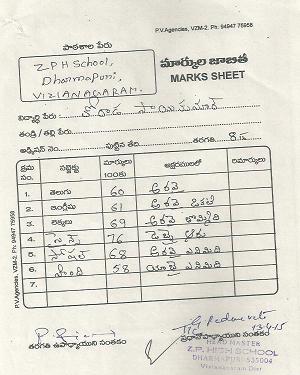 P.V.Agencies, VZM-2. Ph: 94947 75958
పాఠశాల పేరు
Z.P.H School,
Dharmapuri,
VIZIANAGARAM.
మార్కుల జాబితా
MARKS SHEET
విద్యార్థి పేరు: సాయికుమార్
తండ్రి / తల్లి పేరు
అడ్మిషన్ నెం. పుట్టిన తేది తరగతి 8
క్రమ సం. సబ్జెక్టు మార్కులు 100కు అక్షరములలో రిమార్కులు
1. తెలుగు 60 అరవై
2. ఇంగ్లీషు 61 అరవై ఒకటి
3. లెక్కలు 69 అరవై తొమ్మిది
4. సైన్స్ 76 డెబ్బై ఆరు
5. సోషల్ 68 అరవై ఎనిమిది
6. హింది 58 యాభై ఎనిమిది
P.V.Agencies, VZM-2. Ph: 94947 75958
13-4-15
తరగతి ఉపాధ్యాయుని సంతకం ప్రధానోపాధ్యాయుని సంతకం
HEAD MASTER
Z.P. HIGH SCHOOL
DHARMAPURI-535004
Vizianagaram Dist